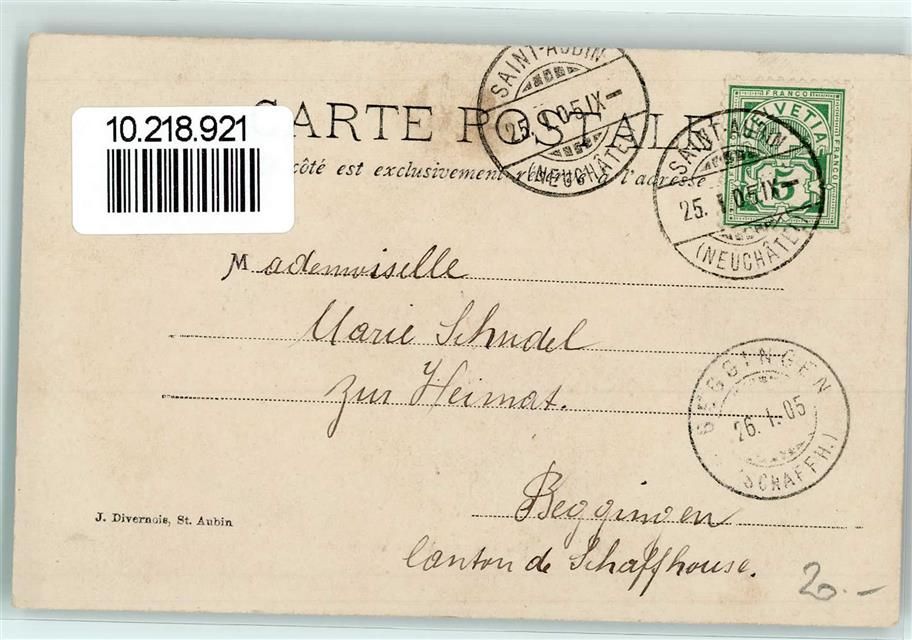 10.218.921
CARTE POSTALE
côté est exclusivement réservé à l'adresse
SAINT-AUBIN
25. I. 05 IX-
(NEUCHÂTEL)
SAINT-AUBIN
25. I. 05 IX-
(NEUCHÂTEL)
FRANCO
HELVETIA
FRANCO
5
Mademoiselle
Marie Schudel
zur Heimat.
BEGGINGEN
26. I. 05
(SCHAFFH.)
Beggingen
Canton de Schaffhouse.
J. Divernois, St. Aubin
20.-